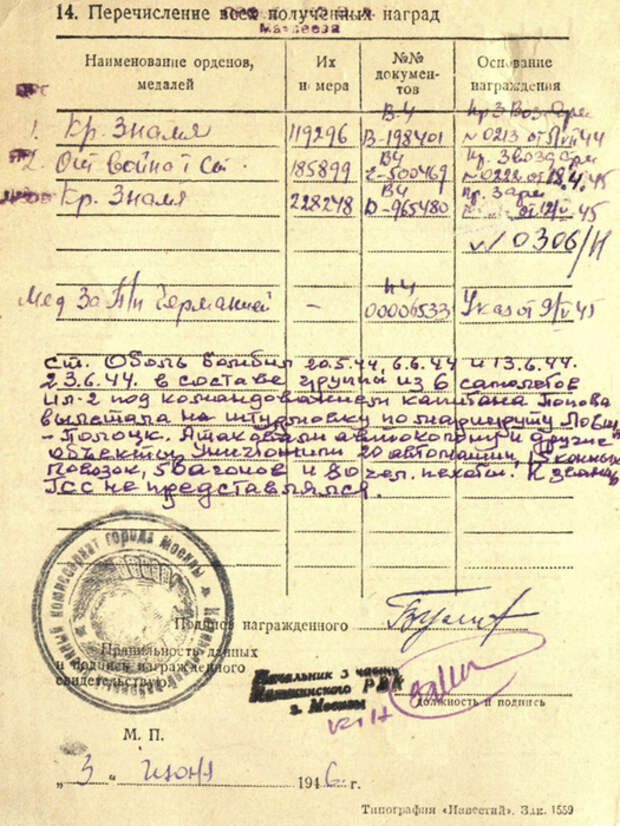 14. Перечисление всех полученных наград
Матвеева
Наименование орденов, медалей
Их номера
№№ документов
Основание награждения
1. Кр. Знамя 119296 В.4 В-198401 Пр 3 Возд Арм №0213 от 44
2. От война I ст. 185899 В4 Г-500469 Пр. 3 Возд арм №0222 от 18.4.45
Кр. Знамя 228248 В4 D-965480 Пр. 3 арм от 12/V 45
№ 0306/Н
Мед За п/н Германией - 00006533 Указ от 9/V 45
ст. Оболь бомбил 20.5.44, 6.6.44 и 13.6.44.
23.6.44. в составе группы из 6 самолетов
Ил-2 под командованием капитана Попова
вылетала на штурмовку по маршруту Ловша
- Полоцк. Атаковали автоколонну и другие
объекты, уничтожили 20 автомашин, 15 конных
повозок, 5 вагонов и 80 чел. пехоты. К званию
ГСС не представлялся.
комиссариат города Москвы
Подпись награжденного
Правильность данных
и подпись награжденного
свидетельствую:
Начальник 3 части
Киевского РВК
г. Москвы
должность и подпись
М. П.
„ 3 “ июня 1946 г.
Типография «Известий». Зак. 1559